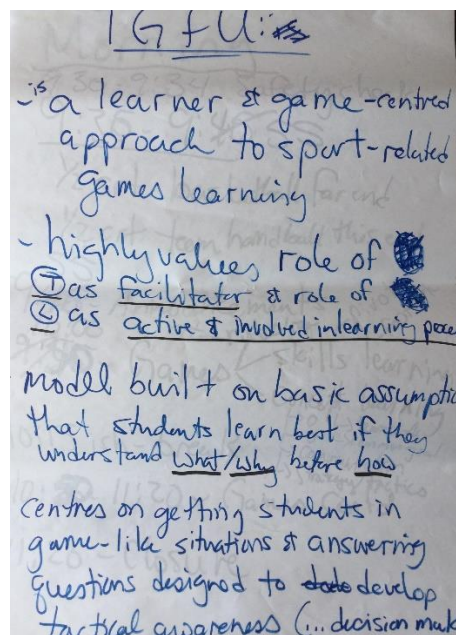 TGfU:
- is a learner & game-centred
approach to sport-related
games learning
- highly values role of
Ⓣ as facilitator & role of
Ⓛ as active & involved in learning proce
model built on basic assumptio
that students learn best if they
understand what/why before how
centres on getting students in
game-like situations & answering
questions designed to develop
tactical awareness (...decision mak